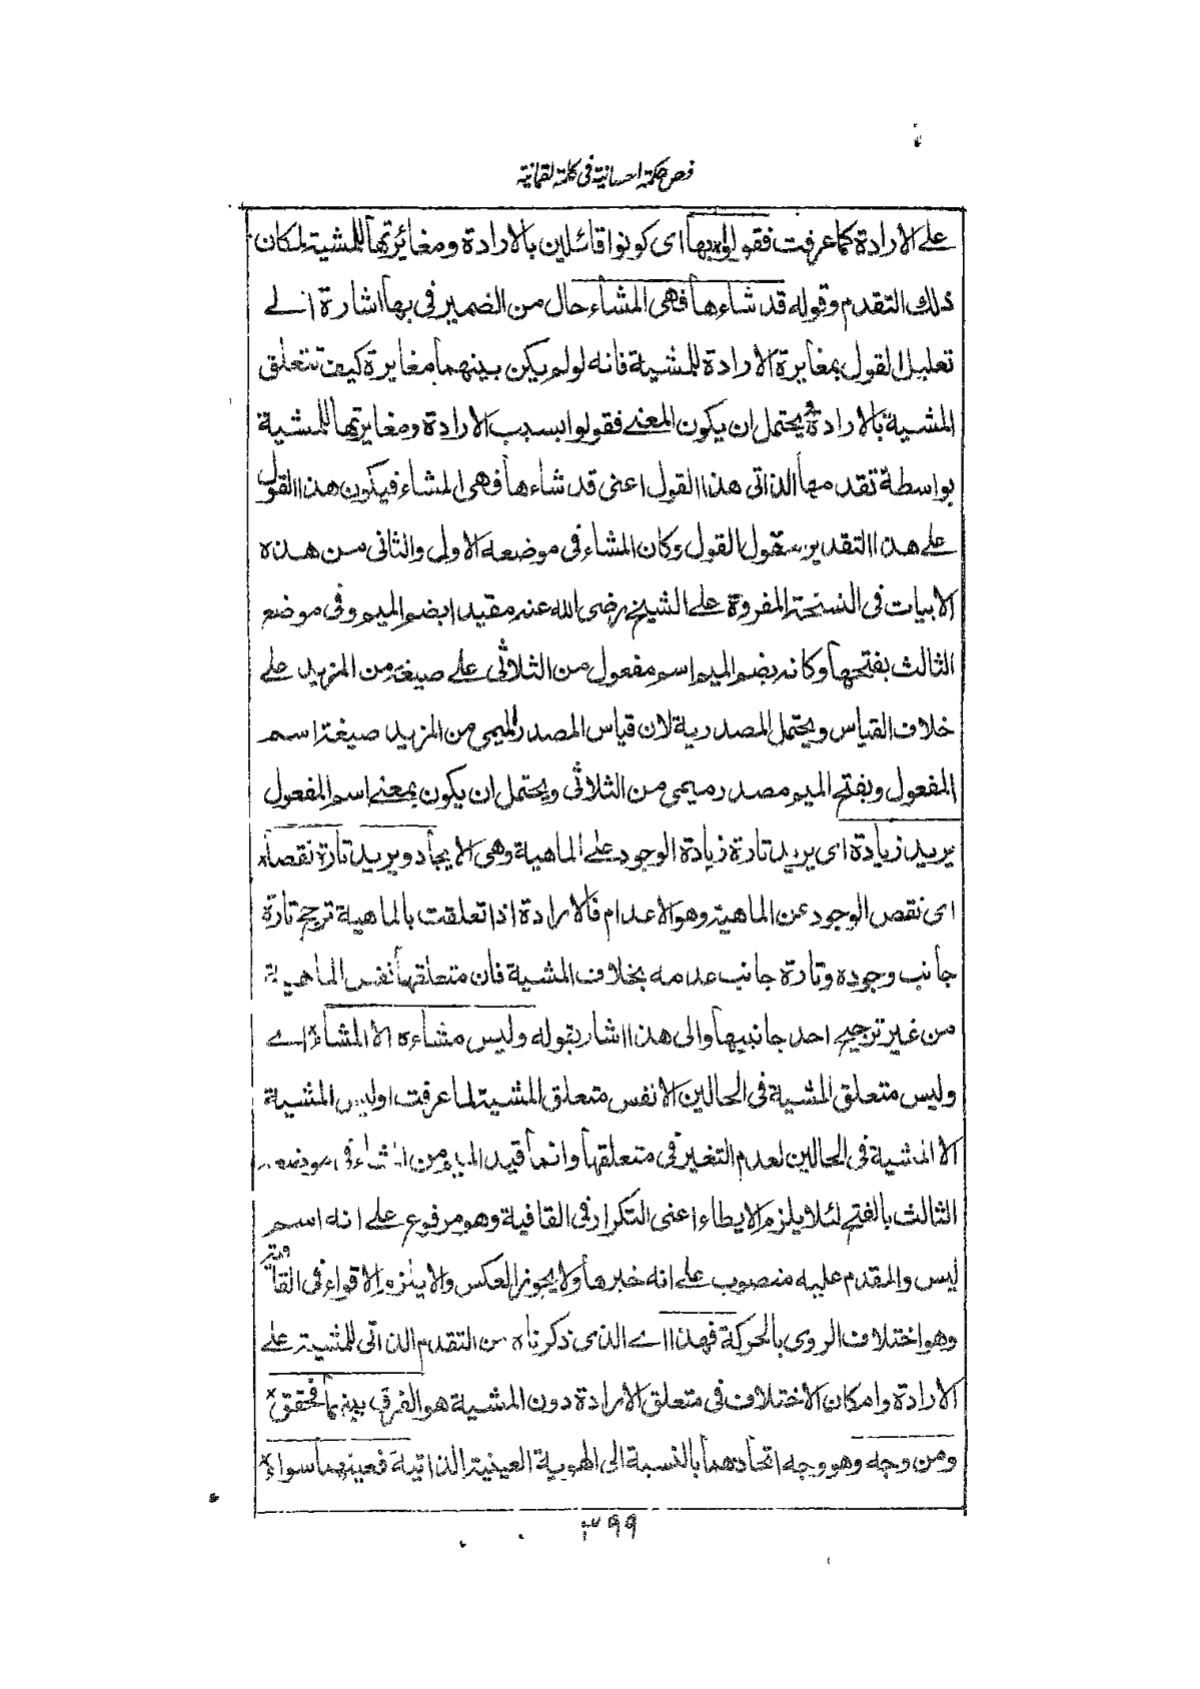 فص حكمة احسانية فى كلمة لقمانية
على الارادة كما عرفت فقولوا بها اى كونوا قائلين بالارادة ومغائرتها للمشية لمكان
ذلك التقدم وقوله قد شاءها فهى المشاء حال من الضمير فى بها اشارة الے
تعليل القول بمغايرة الارادة للمشية فانه لو لم يكن بينهما مغايرة كيف تتعلق
المشية بالارادة ويحتمل ان يكون المعنے فقولوا بسبب الارادة ومغايرتها للمشية
بواسطة تقدمها الذاتى هذا القول اعنى قد شاءها فهى المشاء فيكون هذا القول
على هذا التقدير مقول القول وكان المشاء فى موضعه الاولى والثانى من هذه
الابيات فى النسخة المقروة على الشيخ رضى الله عنه مقيدا بضم الميم وفى موضع
الثالث بفتحها وكانه بضم الميم اسم مفعول من الثلاثى على صيغة من المزيد على
خلاف القياس ويحتمل المصدرية لان قياس المصدر الميمى من المزيد صيغة اسم
المفعول وبفتح الميم مصدر ميمى من الثلاثى ويحتمل ان يكون بمعنے اسم المفعول
يريد زيادة اى يريد تارة زيادة الوجود على الماهية وهى الايجاد ويريد تارة نقصاه
اى نقص الوجود عن الماهية وهو الاعدام فالارادة اذا تعلقت بالماهية ترجح تارة
جانب وجوده وتارة جانب عدمه بخلاف المشية فان متعلقها نفس الماهية
من غير ترجيح احد جانبيها والى هذا اشار بقوله وليس مشاءه الا المشاء اے
وليس متعلق المشية فى الحالين الا نفس متعلق المشية لما عرفت او ليس المشية
الا المشية فى الحالين لعدم التغير فى متعلقها وانما قيد الميم من المشاء فى موضعه
الثالث بالفتح لئلا يلزم الايطاء اعنى التكرار فى القافية وهو مرفوع على انه اسم
ليس والمقدم عليه منصوب على انه خبرها ولا يجوز العكس والا يلزم الاقواء فى القافية
وهو اختلاف الروى بالحركة فهذا اے الذى ذكرناه من التقدم الذاتى للمشية على
الارادة وامكان الاختلاف فى متعلق الارادة دون المشية هو الفرق بينهما فحقق
ومن وجه وهو وجه اتحادهما بالنسبة الى الهوية العينية الذاتية فعينهما سواء
٣٩٩